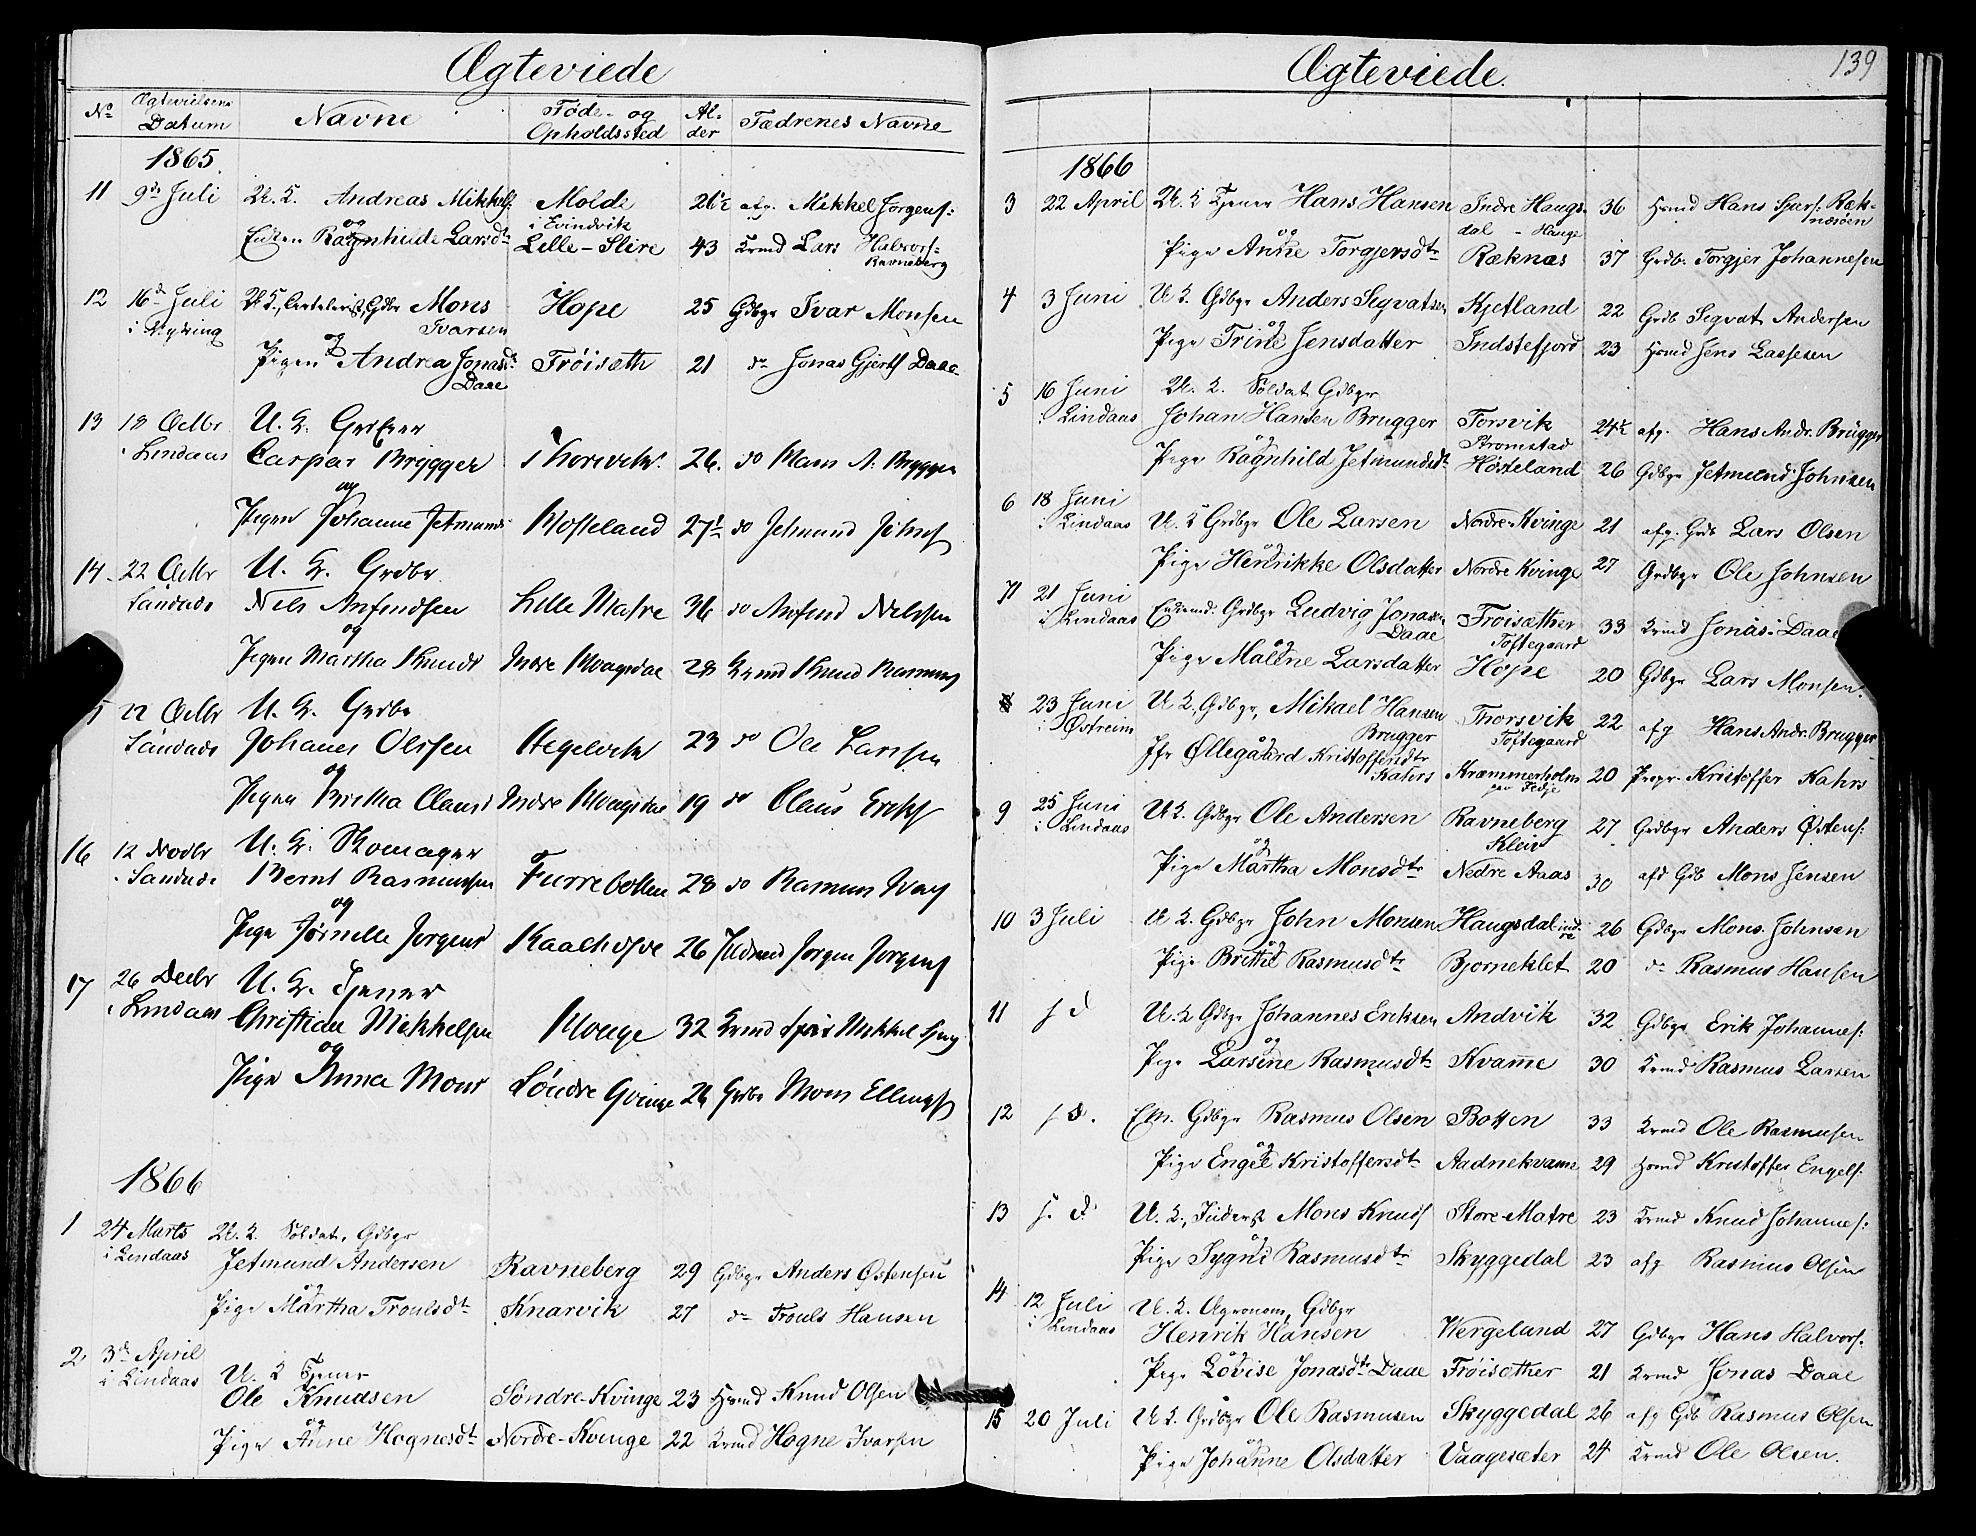 Ægteviede
No Ægtevielsens Datum Navne Føde- og Opholdssted Alder Fædrenes Navne
1865.
11 9de Juli U. K. Andreas Mikkels. Molde i Evindvik 26½ afg. Mikkel Jørgens:
og
Enken Ragnhilde Larsdtr Lille-Slire 43 Lars Halvors: Ravneberg
12 16de Juli U. K., Gdbr Mons Ivarsen Hope 25 Gdbgr Ivar Monsen
og
Pigen Andrea Jonasdr Daae Frøisæth 21 do Jonas Gjerts Daae
13 12 Octbr i Lindaas U. K.
Caspar Brygger Thorsvik 26. do Hans A. Brygger
og
Pigen Johanne Jetmunds Høsteland 27½ do Jetmund Johns
14. 22 Octbr Sandnes U. K. Grdbr
Nils Anfindsen Lille Matre 36 do Anfind Nilssen
og
Pigen Martha Knuds Indre Hougsdal 28 Knud Rasmus
22 Octbr Sandnes U. K. Grdbr
Johanes Olssen Hegelvik 23 do Ole Larssen
og
Pigen Britha Claus Indre Hougsdal 19 do Claus Eriks
16 12 Novbr Sandnes U. K. Skomager
Bernt Rasmussen Furrebotten 28 do Rasmus
og
Pige Jørnelle Jørgens Kaalhofve 26 Jørgen Jørgens
17 26 Decbr i Lindaas U. K. Tjener
Christian Mikkelsen Houge 32 Mikkel
og
Pige Anna Mons Søndre Qvinge 24 Grdbr Mons Ellings
1866
1 24 Marts i Lindaas U. K. Soldat, Gdbgr
Jetmund Andersen Ravneberg 29 Gdbgr Anders Østensen
og
Pige Martha Troulsdtr Knarvik 27 do Trouls Hansen
2 3de April i Lindaas U. K Tjener
Ole Knudsen Søndre-Kvinge 23 Hsmd Knud Olsen
og
Pige Anne Hognesdtr Nordre-Kvinge 22 Hogne Ivarsen
Ægteviede.
139
1866
3 22 April U. K Tjener Hans Hansen Indre Haugsdal - Hauge 36 Hsmd Hans Ræknæsøen
og
Pige Anne Torgjersdtr Ræknæs 37 Grdb. Torgjer Johannesen
4 3 Juni U K. Gdbgr Anders Segvatsen Kjetland 22 Grdb Segvat Andersen
og
Pige Trine Jensdatter Indstefjord 23 Hsmd Jens Lassesen
5 16 Juni i Lindaas U. K. Soldat Gdbgr
Johan Hansen Brugger Torsvik 24½ afg. Hans Andr. Brügger
og
Pige Ragnhild Jetmundsdtr Høsteland 26 Gdbgr Jetmund Johnsen
6 18 Juni i Lindaas U. K Grdbgr Ole Larsen Nordre-Kvinge 21 afg. Grdb Lars Olsen
og
Pige Henrikke Olsdatter Nordre Kvinge 27 Grdbgr Ole Johnsen
7 21. Juni i Lindaas Enkemd. Grdbgr Ludvig Jonasen Daae Frøisæther Toftegaard 33 Jonas Daae
og
Pige Malene Larsdatter Hope 20 Gdbgr Lars Monsen.
8 23 Juni i Østreim U K., Gdbgr, Mikael Hansen Brugger Thorsvik Toftegaard 22 afg Hans Andr. Brugger
og
Jfr Øllegaard Kristoffersdtr Kahrs Kræmmerholm paa Fedje 20 Propr. Kristoffer Kahrs
9 25 Juni i Lindaas U K. Gdbgr Ole Andersen Ravneberg Kleiv 27 Grdbgr Anders Østens:
og
Pige Martha Monsdtr Nedre Aaas 30 afd Gdb Mons Jensen
10 3 Juli U K. Gdbgr John Monsen Haugsdal indre 26 Gdbgr Mons Johnsen
og
Pige Brithe Rasmusdtr Bjorneklet 20 do Rasmus Hansen
11 s d U. K Gdbgr Johannes Eriksen Andvik 32 Gdbgr Erik Johannes:
og
Pige Larsine Rasmusdtr Kvame 30 Rasmus Larsen
12 s d. Em. Gdbgr Rasmus Olsen Botten 33 Ole Rasmusen
og
Pige Engel Kristoffersdtr Aadnekvame 29 Hsmd Kristoffer Engels:
13 s. d. U. K., Inderst Mons Knuds Store-Matre 23 Knud Johannes:
og
Pige Sygni Rasmusdtr Skyggedal 23 afg Rasmus Olsen
14 12 Juli i Lindaas U. K. Agronom, Gdbgr
Henrik Hansen Wergeland 27 Gdbgr Hans Halvors:
og
Pige Lovise Jonasdtr Daae Frøisæther 21 Jonas Daae
15 20 Juli U K. Grdbgr Ole Rasmusen Skyggedal 26 afg Gdb Rasmus Olsen
og
Pige Johanne Olsdatter Vaagesæter 24 Ole Olsen.